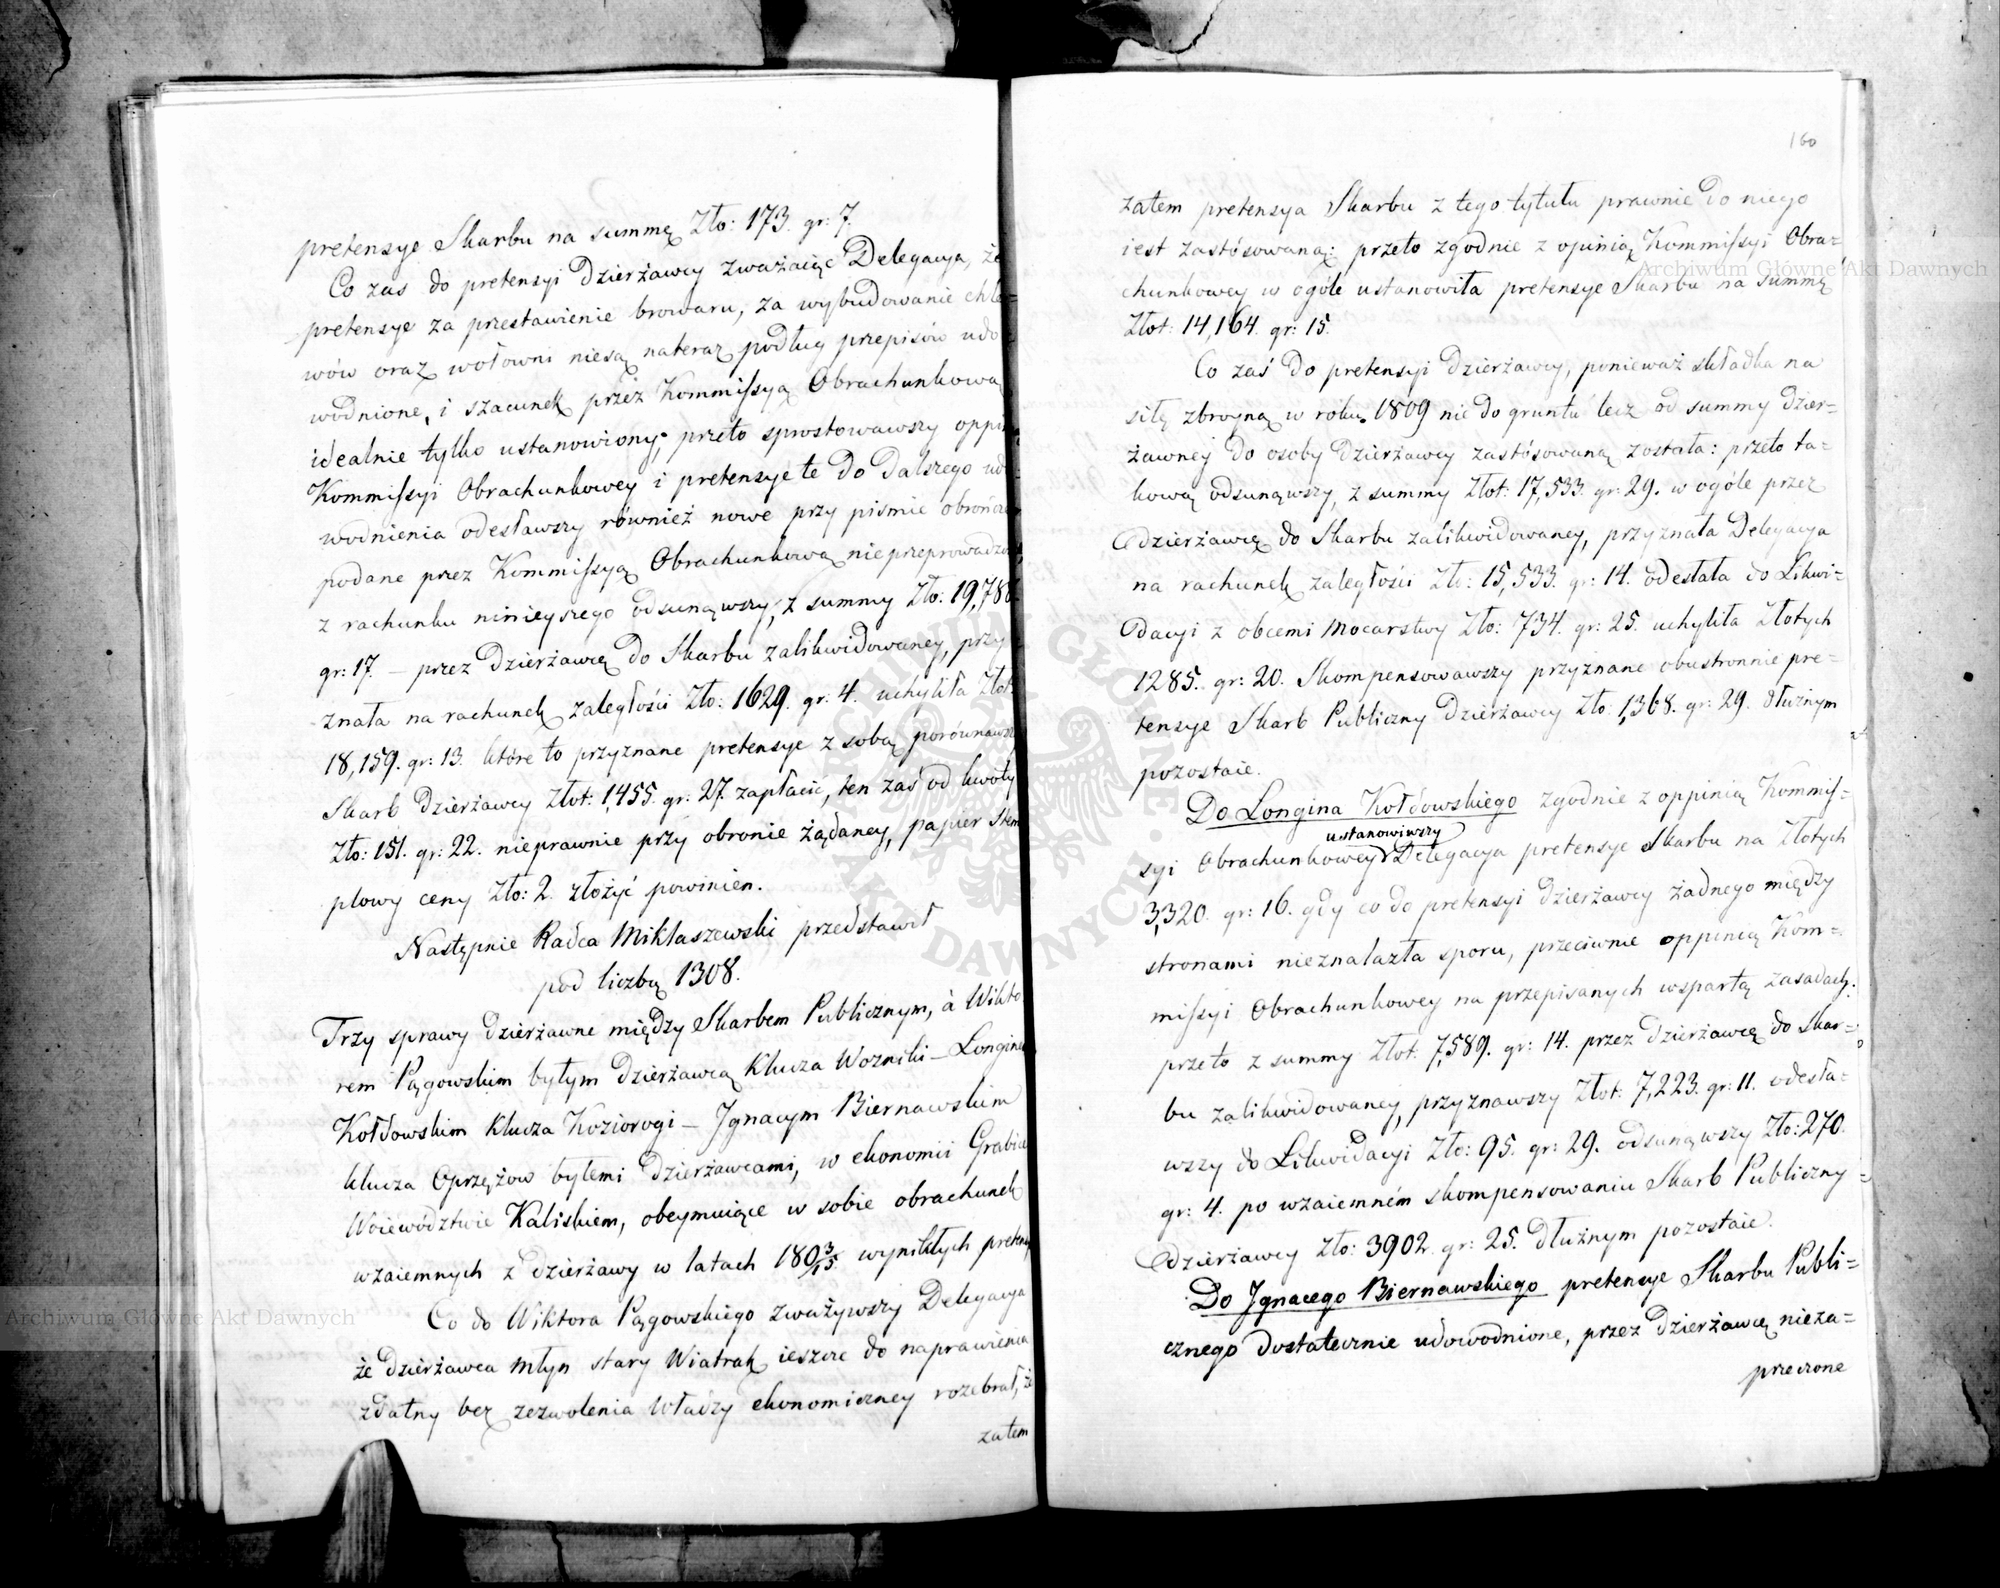 pretensye Skarbu na summę Zło: 173. gr: 7.
Co zas do pretensyi Dzierżawcy zważaiąc Delegacya, że
pretensye za przestawienie browaru, za wybudowanie chle=
wów oraz wołowni niesą nateraz podług przepisów udo
wodnione, i szacunek przez Kommissyą Obrachunkową
idealnie tylko ustanowiony; przeto sprostowawszy oppi
Kommissyi Obrachunkowey i pretensye te do dalszego ud
wodnienia odesławszy również nowe przy pismie obrończ
podane przez Kommissyą Obrachunkową nieprzeprowadzo
z rachunku ninieyszego odsunąwszy, z summy Zło: 19,788.
gr: 17. – przez Dzierżawcę do Skarbu zalikwidowaney, przy
znała na rachunek zaległości Zło: 1629. gr: 4. uchyliła Złot:
18,159. gr: 13. które to przyznane pretensye z sobą porównawszy
Skarb Dzierżawcy Złot: 1,455. gr: 27. zapłacić, ten zaś od kwoty
Zło: 151. gr: 22. nieprawnie przy obronie żądaney, papier Stem
plowy ceny Zło: 2. złożyć powinien.
Następnie Radca Miklaszewski przedstawił
pod liczbą 1308.
Trzy sprawy dzierżawne między Skarbem Publicznym, à Wikto
rem Pągowskim byłym Dzierżawcą Klucza Wozniki – Longinem
Kołdowskim Klucza Koziorogi – Jgnacym Biernawskim
klucza Oprzężow byłemi Dzierżawcami, w ekonomii Grabia
Woiewództwie Kaliskiem, obeymuiące w sobie obrachunek
wzaiemnych z dzierżawy w latach 180 3/15 wynikłych preten
Co do Wiktora Pągowskiego zważywszy Delegacya
że dzierżawca młyn stary Wiatrak ieszcze do naprawienia
zdatny bez zezwolenia Władzy ekonomiczney rozebrał, że
zatem
160
zatem pretensya Skarbu z tego tytułu prawnie do niego
iest zastósowaną: przeto zgodnie z opinią Kommissyi Obra=
chunkowey w ogóle ustanowiła pretensye Skarbu na Summę
Złot: 14,164. gr: 15.
Co zaś do pretensyi Dzierżawcy, ponieważ składka na
siłę zbroyną w roku 1809 nie do gruntu lecz od summy dzier=
żawney do osoby Dzierżawcy zastósowaną została: przeto ta=
kową odsunąwszy, z summy Złot: 17,533. gr: 29. w ogóle przez
dzierżawcę do Skarbu zalikwidowaney, przyznała Delegacya
na rachunek zaległości Zło: 15,533. gr: 14. odesłała do Likwi=
dacyi z obcemi Mocarstwy Zło: 734. gr: 25. uchyliła Złotych
1285. gr: 20. Skompensowawszy przyznane obustronnie pre=
tensye Skarb Publiczny Dzierżawcy Zło: 1,368. gr: 29. dłużnym
pozostaie.
Do Longina Kołdowskiego zgodnie z oppinią Kommis=
ustanowiwszy
syi Obrachunkowey Delegacya pretensye Skarbu na Złotych
3,320. gr: 16. gdy co do pretensyi Dzierżawcy żadnego między
stronami nieznalazła sporu, przeciwnie oppinią Kom=
missyi Obrachunkowey na przepisanych wspartą zasadach;
przeto z summy Złot: 7,589. gr: 14. przez Dzierżawcę do Skar=
bu zalikwidowaney, przyznawszy Złot: 7,223. gr: 11. odesła=
wszy do Likwidacyi Zło: 95. gr: 29. odsunąwszy Zło: 270.
gr: 4. po wzaiemném skompensowaniu Skarb Publiczny
dzierżawcy Zło: 3902. gr: 25. dłużnym pozostaie.
Do Jgnacego Biernawskiego pretensye Skarbu Publi=
cznego dostatecznie udowodnione, przez Dzierżawcę nieza=
przeczone
Archiwum Główne Akt Dawnych
Archiwum Główne Akt Dawnych
ARCHIWUM GŁÓWNE AKT DAWNYCH